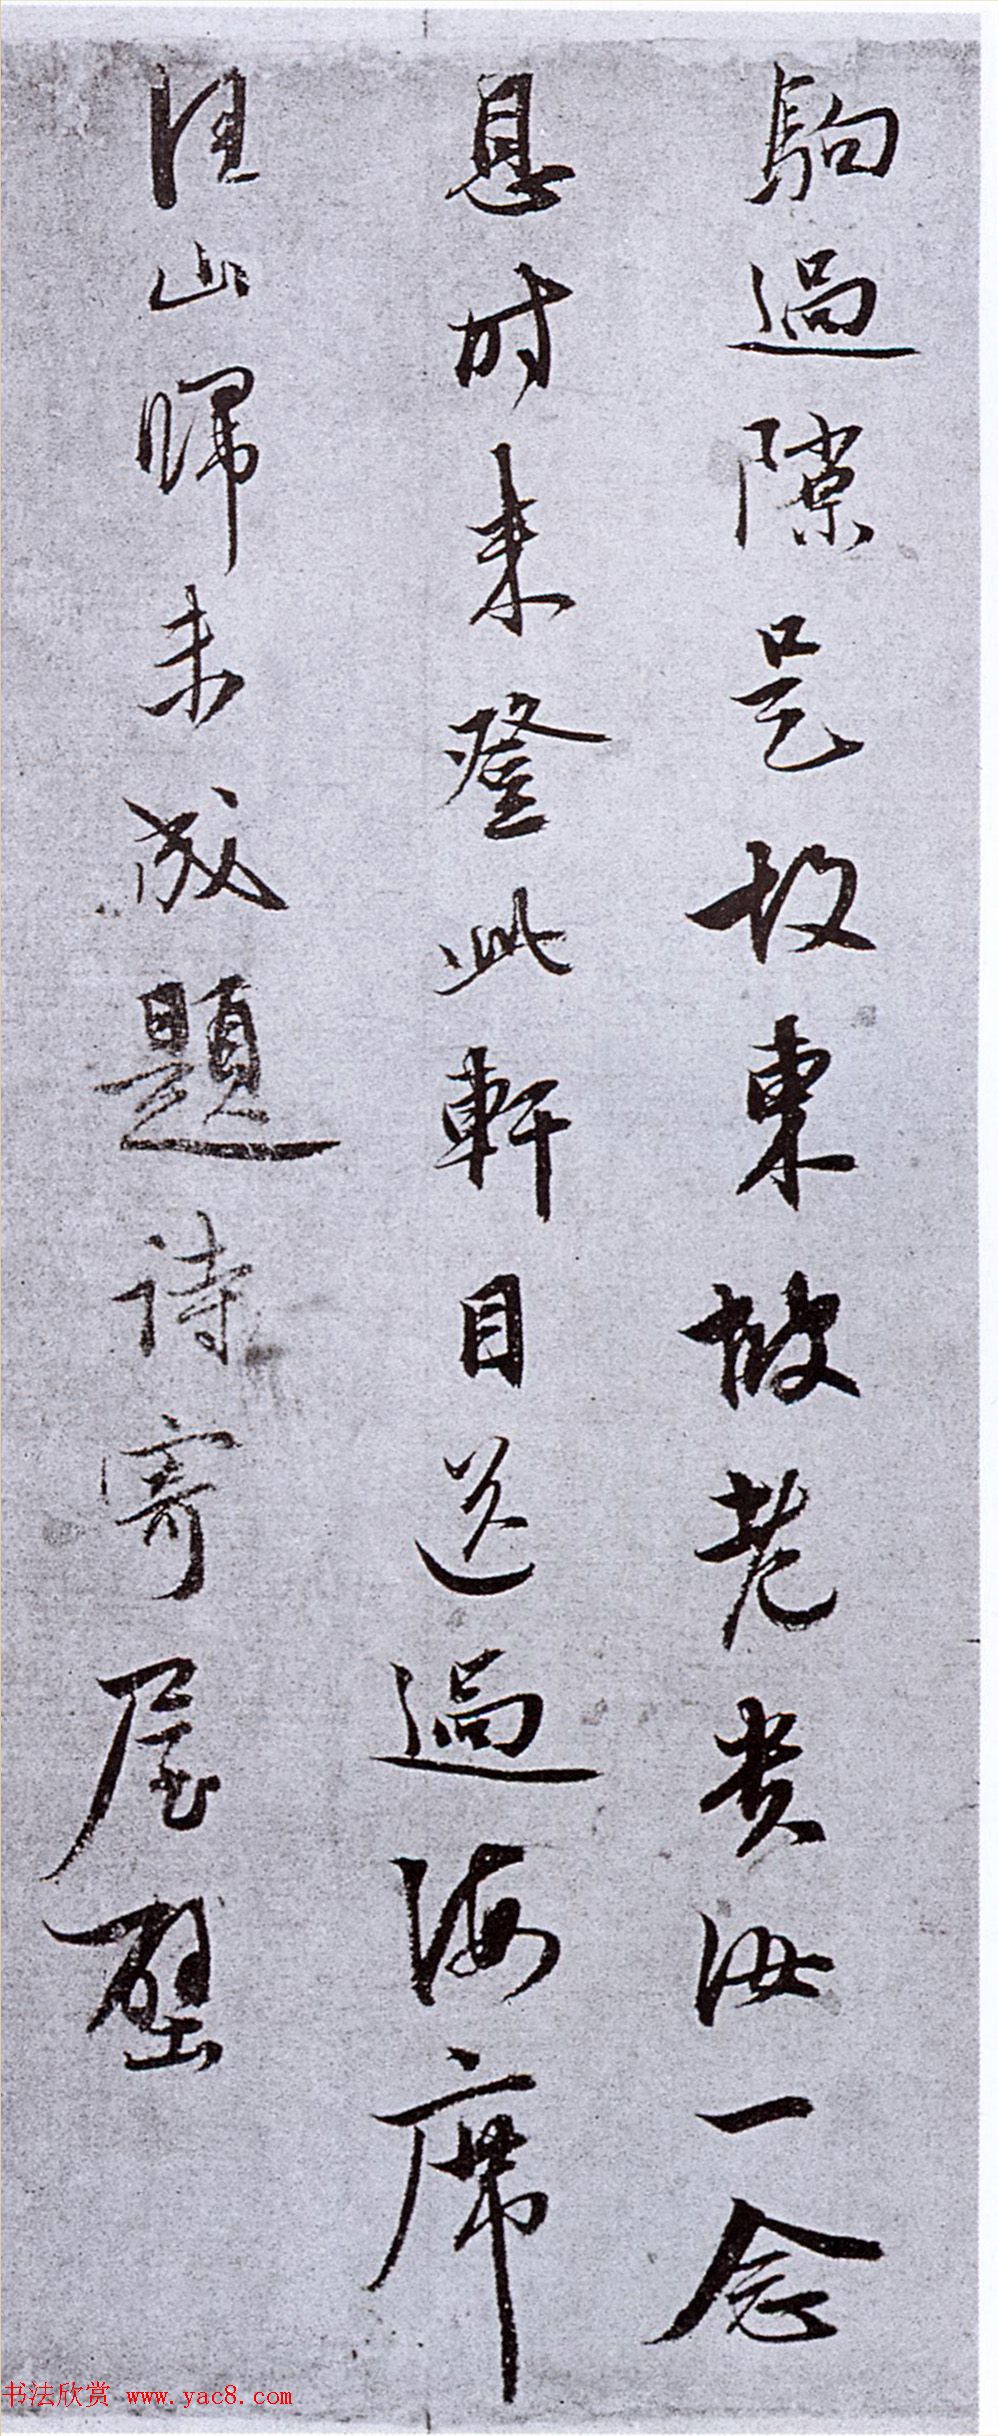 駒過隙是故東坡老貴汝一念
息時来登此軒目送過海席
山歸未成題詩寄屋壁
书法欣赏 www.yac8.com